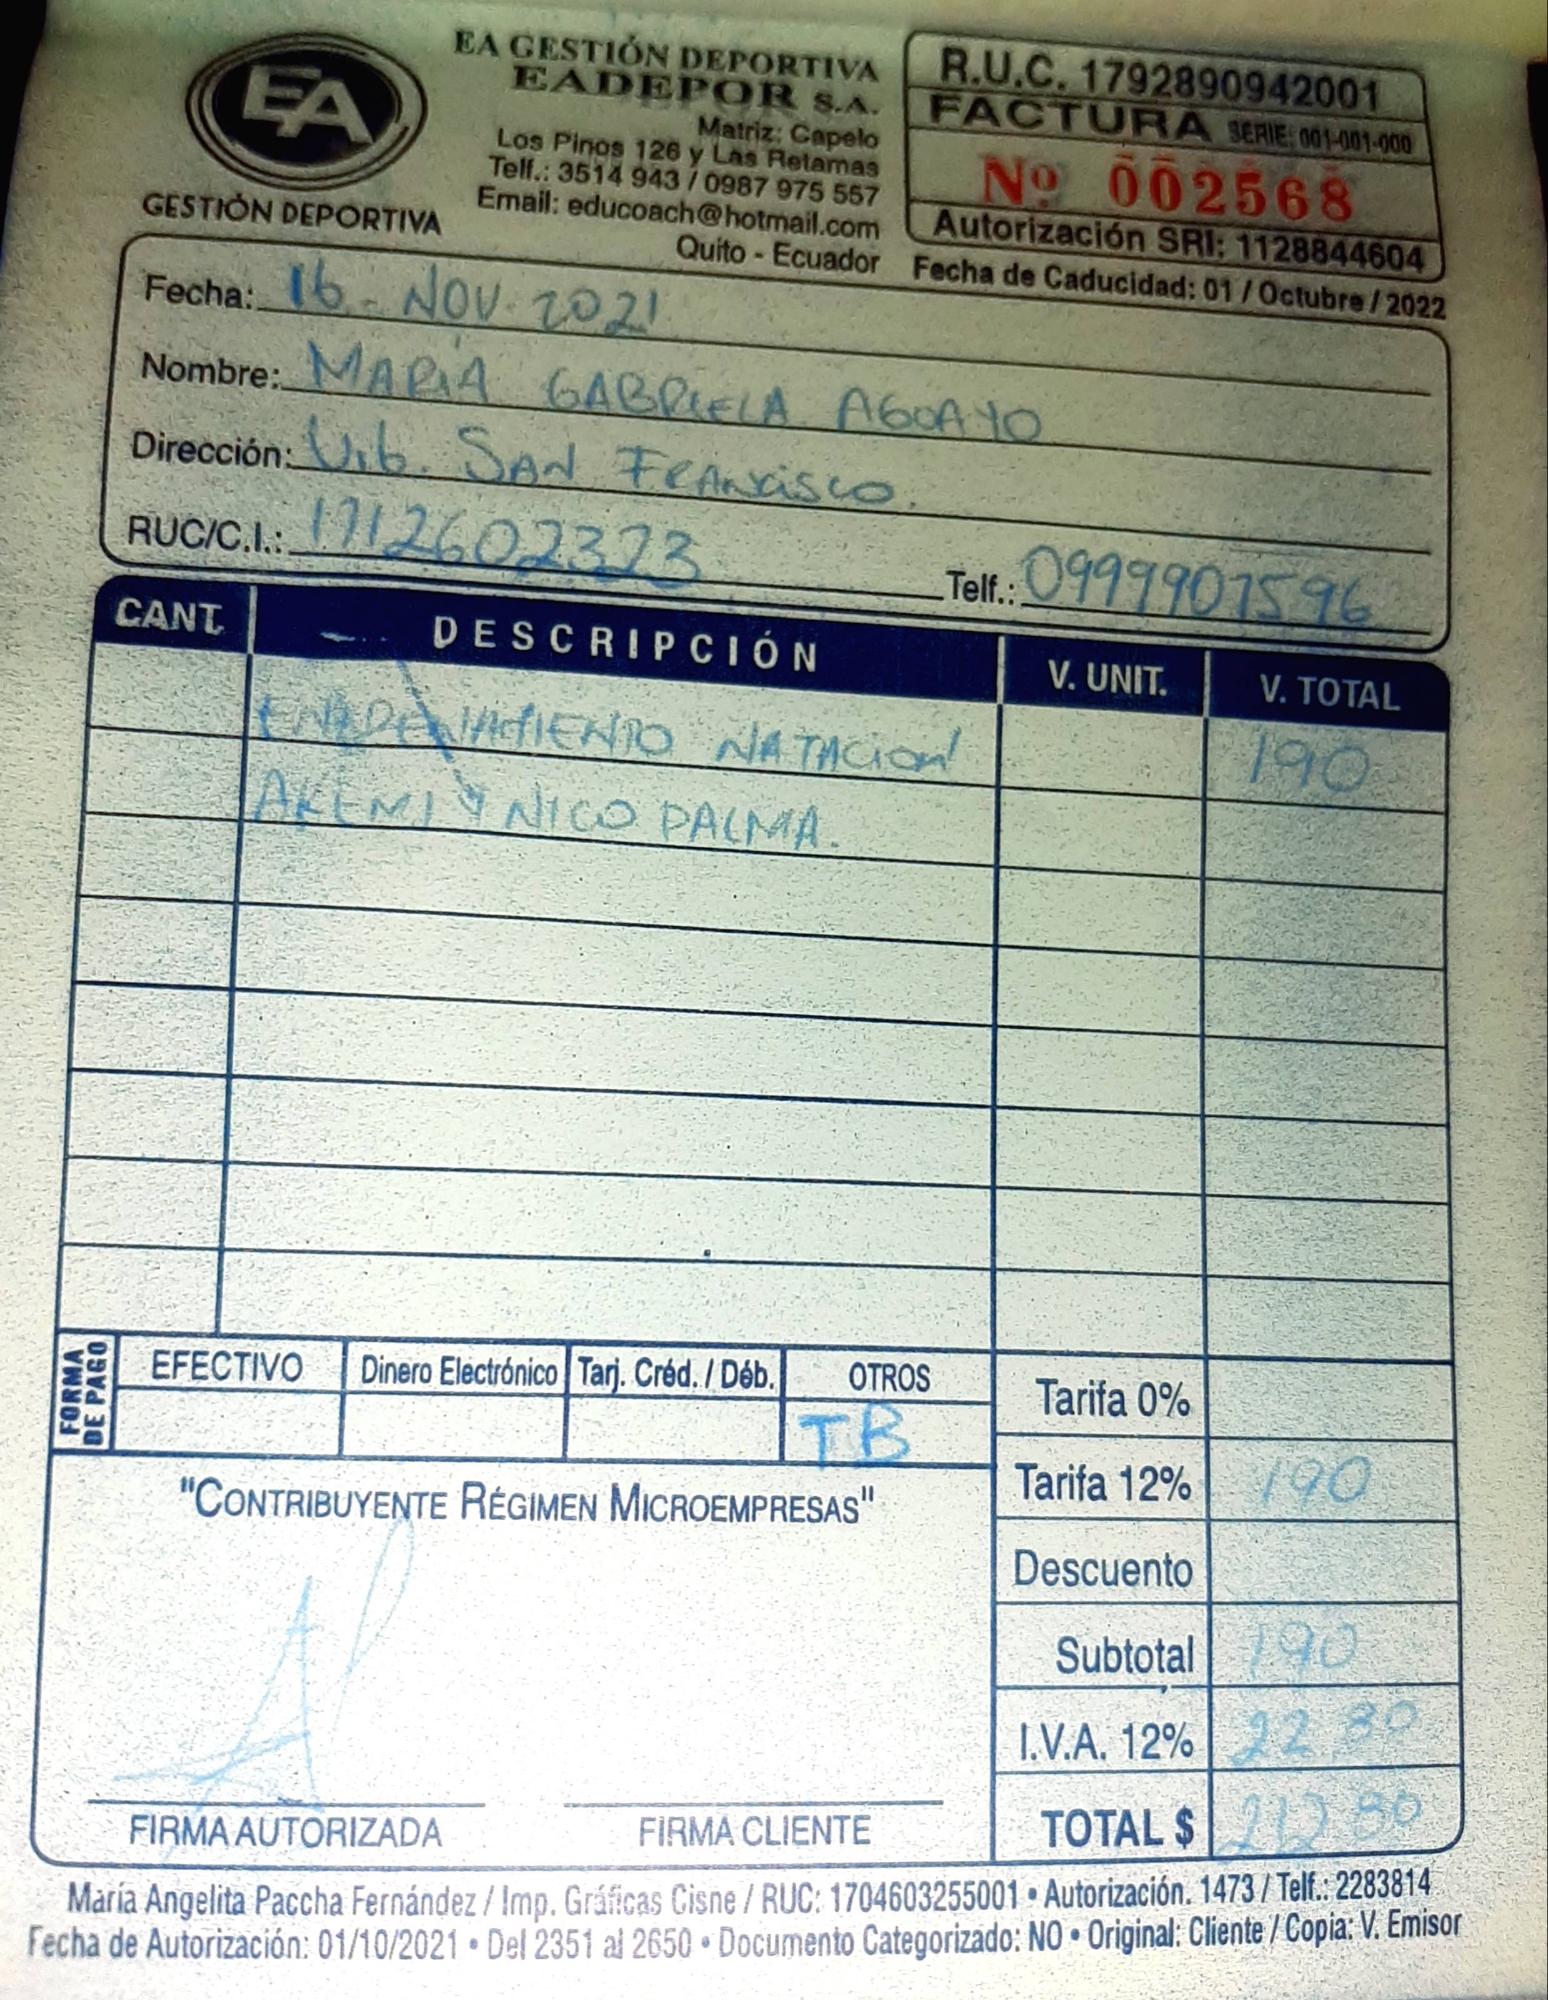 EA
GESTIÓN DEPORTIVA
EA GESTIÓN DEPORTIVA
EADEPOR S.A.
Matriz: Capelo
Los Pinos 126 y Las Retamas
Telf.: 3514 943 / 0987 975 557
Email: educoach@hotmail.com
Quito - Ecuador
R.U.C. 1792890942001
FACTURA SERIE: 001-001-000
Nº 002568
Autorización SRI: 1128844604
Fecha de Caducidad: 01 / Octubre / 2022
Fecha: 16 - NOV - 2021
Nombre: MARÍA GABRIELA AGUAYO
Dirección: Urb. SAN FRANCISCO.
RUC/C.I.: 1712602323 Telf.: 0999907596
CANT. DESCRIPCIÓN V. UNIT. V. TOTAL
ENTRENAMIENTO NATACIÓN 190
AKEMI Y NICO PALMA.
FORMA DE PAGO
EFECTIVO Dinero Electrónico Tarj. Créd. / Déb. OTROS
TB
Tarifa 0%
Tarifa 12% 190
Descuento
Subtotal 190
I.V.A. 12% 22 80
TOTAL $ 212 80
"CONTRIBUYENTE RÉGIMEN MICROEMPRESAS"
FIRMA AUTORIZADA FIRMA CLIENTE
María Angelita Paccha Fernández / Imp. Gráficas Cisne / RUC: 1704603255001 • Autorización. 1473 / Telf.: 2283814
Fecha de Autorización: 01/10/2021 • Del 2351 al 2650 • Documento Categorizado: NO • Original: Cliente / Copia: V. Emisor